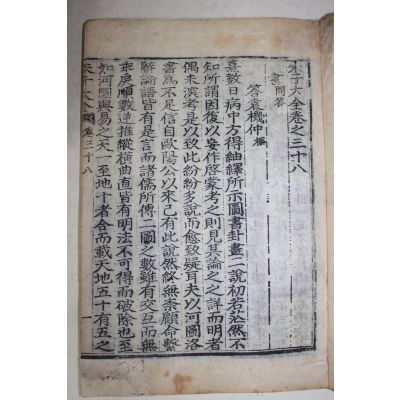 朱子大全卷之三十八
書 問答
答袁機仲 樞
熹數日病中方得紬繹所示圖書卦畫二說初若茫然不
知所謂因復以妄作啓蒙考之則見其論之之詳而明者
偶未深考是以致此紛紛多說而愈致疑耳夫以河圖洛
書爲不足信自歐陽公以來已有此說然終無柰顧命繫
辭論語皆有是言而諸儒所傳二圖之數雖有交互而無
乖戾順數逆推縱橫曲直皆有明法不可得而破除也至
如河圖與易之天一至地十者合而載天地五十有五之
朱子大全 卷三十八 一